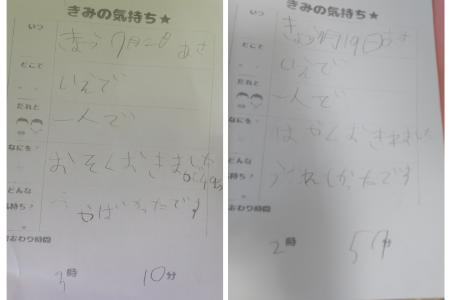 きみの気持ち★
いつ
きょう7月20 あさ
どこで
いえで
だれと
一人で
なにを?
おそくおきました
どんな
気持ち?
やばいかったです
おわり時間
3時 10分
きみの気持ち★
いつ
きょう 月19日あさ
どこで
いえで
だれと
一人で
なにを?
はやくおきれました
どんな
気持ち?
うれしかったです
おわり時間
2時 分